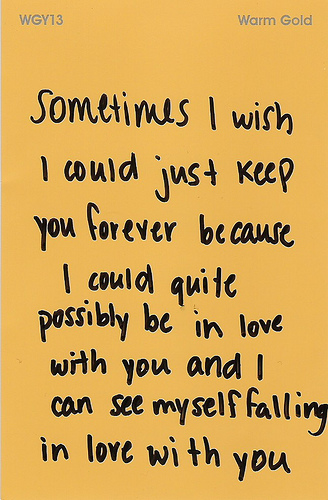 WGY13 Warm Gold
sometimes I wish
I could just keep
you forever because
I could quite
possibly be in love
with you and I
can see myself falling
in love with you